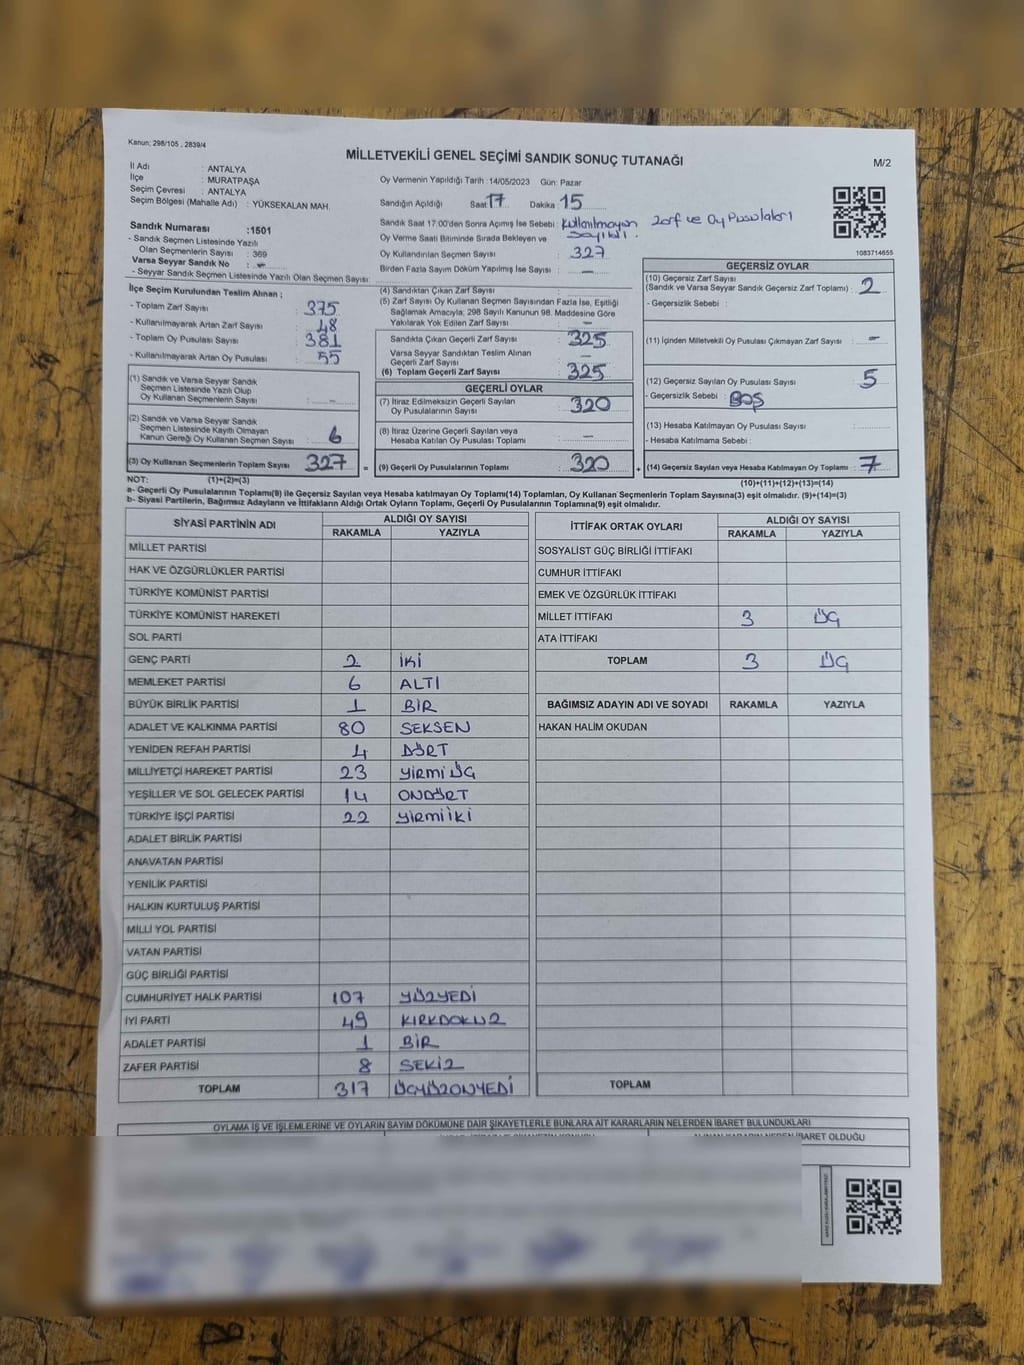 Kanun; 298/105 , 2839/4
MİLLETVEKİLİ GENEL SEÇİMİ SANDIK SONUÇ TUTANAĞI
M/2
İl Adı : ANTALYA
İlçe : MURATPAŞA
Seçim Çevresi : ANTALYA
Seçim Bölgesi (Mahalle Adı) : YÜKSEKALAN MAH.
Sandık Numarası :1501
- Sandık Seçmen Listesinde Yazılı
Olan Seçmenlerin Sayısı : 369
Varsa Seyyar Sandık No : -
- Seyyar Sandık Seçmen Listesinde Yazılı Olan Seçmen Sayısı:
Oy Vermenin Yapıldığı Tarih :14/05/2023 Gün: Pazar
Sandığın Açıldığı Saat 17 Dakika 15
Sandık Saat 17.00'den Sonra Açımış İse Sebebi : Kullanılmayan zarf ve Oy Pusulaları
sayıldı.
Oy Verme Saati Bitiminde Sırada Bekleyen ve
Oy Kullandırılan Seçmen Sayısı : 327
Birden Fazla Sayım Döküm Yapılmış İse Sayısı : -
1083714655
İlçe Seçim Kurulundan Teslim Alınan ;
- Toplam Zarf Sayısı : 375
- Kullanılmayarak Artan Zarf Sayısı : 48
- Toplam Oy Pusulası Sayısı : 381
- Kullanılmayarak Artan Oy Pusulası : 55
(1) Sandık ve Varsa Seyyar Sandık
Seçmen Listesinde Yazılı Olup
Oy Kullanan Seçmenlerin Sayısı : -
(2) Sandık ve Varsa Seyyar Sandık
Seçmen Listesinde Kayıtlı Olmayan
Kanun Gereği Oy Kullanan Seçmen Sayısı : 6
(3) Oy Kullanan Seçmenlerin Toplam Sayısı : 327 =
(4) Sandıktan Çıkan Zarf Sayısı :
(5) Zarf Sayısı Oy Kullanan Seçmen Sayısından Fazla İse, Eşitliği
Sağlamak Amacıyla; 298 Sayılı Kanunun 98. Maddesine Göre
Yakılarak Yok Edilen Zarf Sayısı : -
Sandıkta Çıkan Geçerli Zarf Sayısı : 325
Varsa Seyyar Sandıktan Teslim Alınan
Geçerli Zarf Sayısı : -
(6) Toplam Geçerli Zarf Sayısı : 325
GEÇERLİ OYLAR
(7) İtiraz Edilmeksizin Geçerli Sayılan
Oy Pusulalarının Sayısı : 320
(8) İtiraz Üzerine Geçerli Sayılan veya
Hesaba Katılan Oy Pusulası Toplamı : -
(9) Geçerli Oy Pusulalarının Toplamı : 320 +
GEÇERSİZ OYLAR
(10) Geçersiz Zarf Sayısı
(Sandık ve Varsa Seyyar Sandık Geçersiz Zarf Toplamı) : 2
- Geçersizlik Sebebi :
(11) İçinden Milletvekili Oy Pusulası Çıkmayan Zarf Sayısı : -
(12) Geçersiz Sayılan Oy Pusulası Sayısı : 5
- Geçersizlik Sebebi : BOŞ
(13) Hesaba Katılmayan Oy Pusulası Sayısı :
- Hesaba Katılmama Sebebi :
(14) Geçersiz Sayılan veya Hesaba Katılmayan Oy Toplamı : 7
NOT: (1)+(2)=(3)
(10)+(11)+(12)+(13)=(14)
a- Geçerli Oy Pusulalarının Toplamı(9) ile Geçersiz Sayılan veya Hesaba Katılmayan Oy Toplamı(14) Toplamları, Oy Kullanan Seçmenlerin Toplam Sayısına(3) eşit olmalıdır. (9)+(14)=(3)
b- Siyasi Partilerin, Bağımsız Adayların ve İttifakların Aldığı Ortak Oyların Toplamı, Geçerli Oy Pusulalarının Toplamına(9) eşit olmalıdır.
SİYASİ PARTİNİN ADI
ALDIĞI OY SAYISI
RAKAMLA YAZIYLA
MİLLET PARTİSİ
HAK VE ÖZGÜRLÜKLER PARTİSİ
TÜRKİYE KOMÜNİST PARTİSİ
TÜRKİYE KOMÜNİST HAREKETİ
SOL PARTİ
GENÇ PARTİ 2 İKİ
MEMLEKET PARTİSİ 6 ALTI
BÜYÜK BİRLİK PARTİSİ 1 BİR
ADALET VE KALKINMA PARTİSİ 80 SEKSEN
YENİDEN REFAH PARTİSİ 4 DÖRT
MİLLİYETÇİ HAREKET PARTİSİ 23 YİRMİ ÜÇ
YEŞİLLER VE SOL GELECEK PARTİSİ 14 ONDÖRT
TÜRKİYE İŞÇİ PARTİSİ 22 YİRMİ İKİ
ADALET BİRLİK PARTİSİ
ANAVATAN PARTİSİ
YENİLİK PARTİSİ
HALKIN KURTULUŞ PARTİSİ
MİLLİ YOL PARTİSİ
VATAN PARTİSİ
GÜÇ BİRLİĞİ PARTİSİ
CUMHURİYET HALK PARTİSİ 107 YÜZYEDİ
İYİ PARTİ 49 KIRKDOKUZ
ADALET PARTİSİ 1 BİR
ZAFER PARTİSİ 8 SEKİZ
TOPLAM 317 ÜÇYÜZONYEDİ
İTTİFAK ORTAK OYLARI
ALDIĞI OY SAYISI
RAKAMLA YAZIYLA
SOSYALİST GÜÇ BİRLİĞİ İTTİFAKI
CUMHUR İTTİFAKI
EMEK VE ÖZGÜRLÜK İTTİFAKI
MİLLET İTTİFAKI 3 ÜÇ
ATA İTTİFAKI
TOPLAM 3 ÜÇ
BAĞIMSIZ ADAYIN ADI VE SOYADI RAKAMLA YAZIYLA
HAKAN HALİM OKUDAN
TOPLAM
OYLAMA İŞ VE İŞLEMLERİNE VE OYLARIN SAYIM DÖKÜMÜNE DAİR ŞİKAYETLERLE BUNLARA AİT KARARLARIN NELERDEN İBARET BULUNDUKLARI
İBARET OLDUĞU